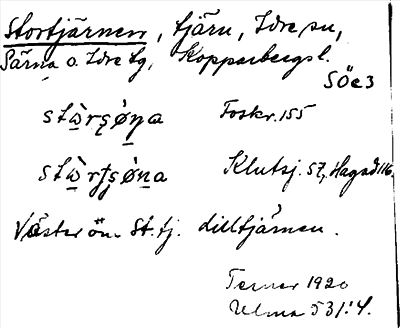 Stortjärnen, tjärn, Idre sn,
Särna o. Idre tg, Kopparbergs l.
SÖe3
Foskr. 155
Klutsj. 57, Hagad 116.
Väster öm St. tj. lilltjärnen.
Terner 1920
Ulma 531:4.